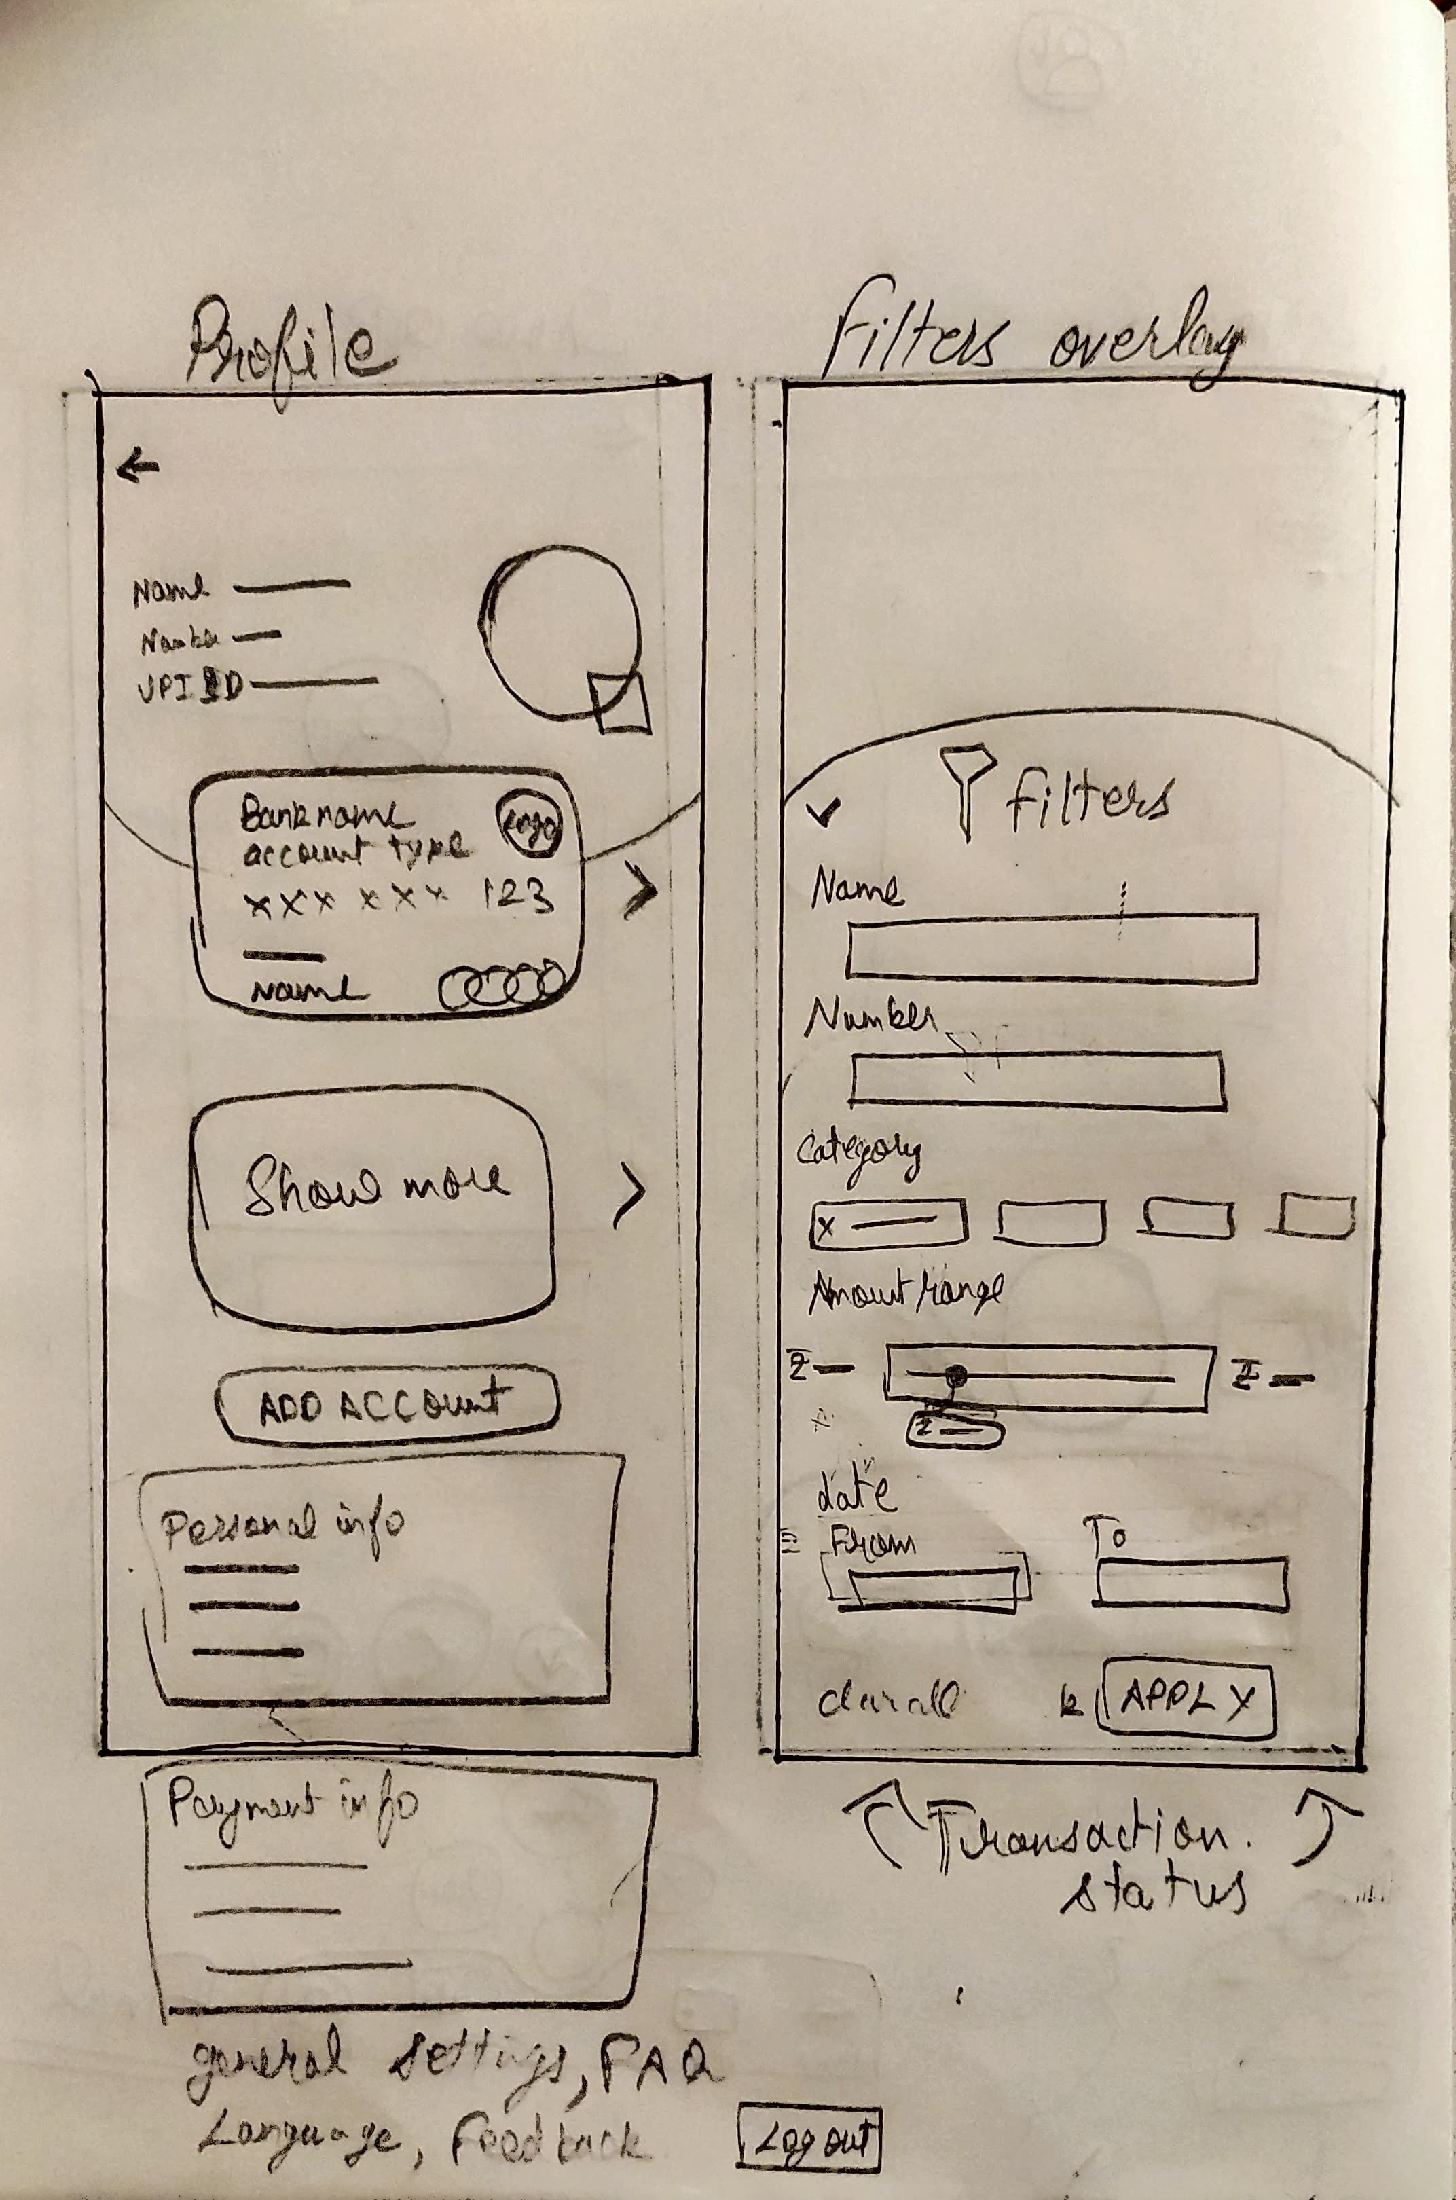 Profile
Name
Number
UPI ID
Bank name
account type
logo
xxx xxx 123
Name
Show more
ADD ACCOUNT
Personal info
Payment info
general settings, FAQ
Language, Feedback
Log out
Filters overlay
Filters
Name
Number
Category
x
Amount range
date
From
To
clear all
APPLY
Transaction.
status